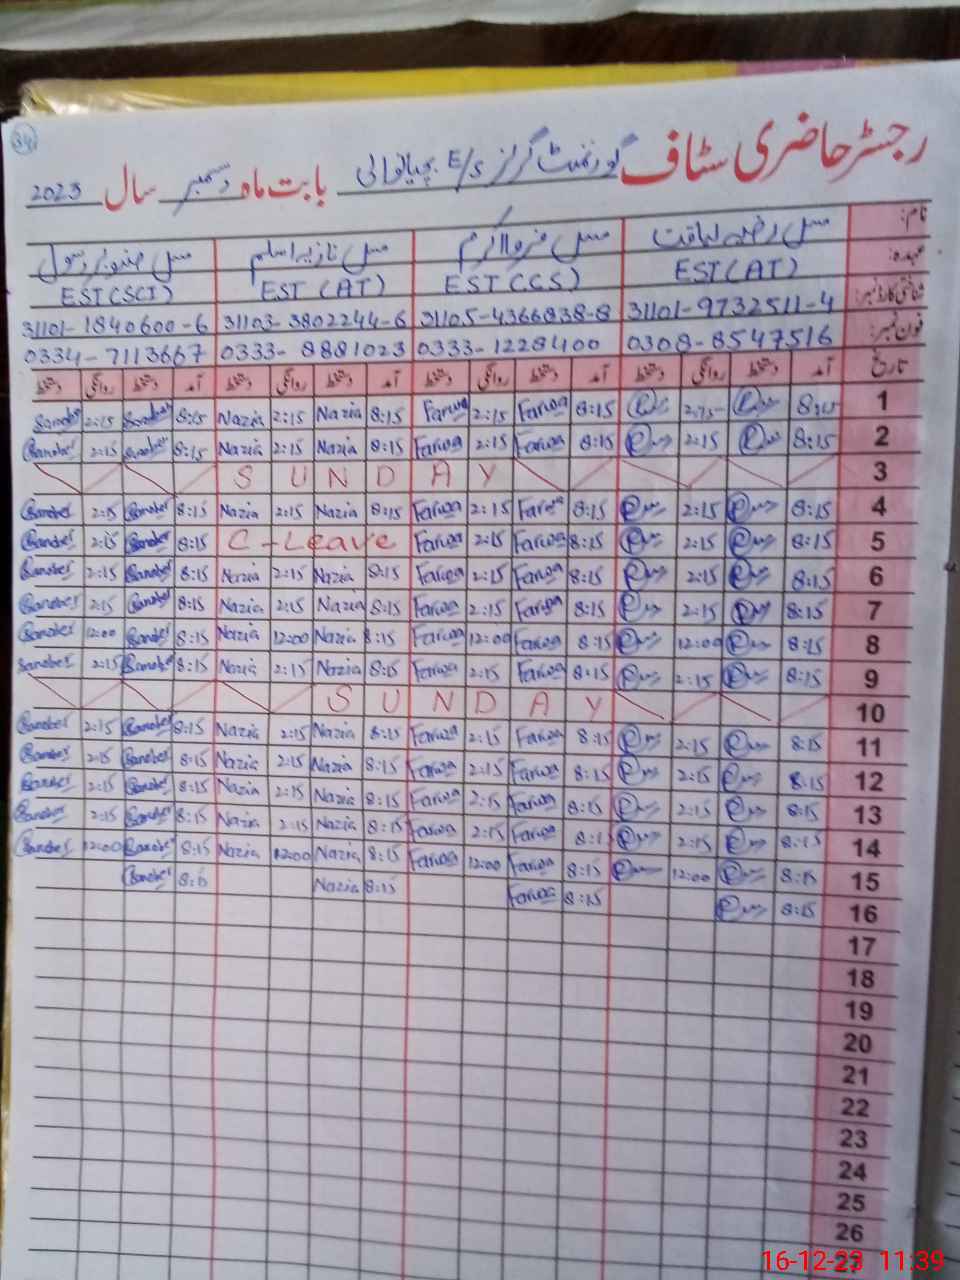 34
رجسٹر حاضری سٹاف گورنمنٹ گرلز E/S بابت ماہ دسمبر سال 2023
نام: مس مس مس نازیہ اسلم مس
عہدہ: EST (AT) EST (CS) EST (AT) EST (SCI)
شناختی کارڈ نمبر: 31101-9732511-4 31105-4366838-8 31103-3802244-6 31101-1840600-6
فون نمبر: 0308-8547516 0333-1228400 0333-8881023 0334-7113667
تاریخ آمد دستخط روانگی دستخط آمد دستخط روانگی دستخط آمد دستخط روانگی دستخط آمد دستخط روانگی دستخط
Sanober 2:15 Sanober 8:15 Nazia 2:15 Nazia 8:15 Farwa 2:15 Farwa 8:15 2:15 8:15 1
Sanober 2:15 Sanober 8:15 Nazia 2:15 Nazia 8:15 Farwa 2:15 Farwa 8:15 2:15 8:15 2
SUNDAY 3
Sanober 2:15 Sanober 8:15 Nazia 2:15 Nazia 8:15 Farwa 2:15 Farwa 8:15 2:15 8:15 4
Sanober 2:15 Sanober 8:15 C-Leave Farwa 2:15 Farwa 8:15 2:15 8:15 5
Sanober 2:15 Sanober 8:15 Nazia 2:15 Nazia 8:15 Farwa 2:15 Farwa 8:15 2:15 8:15 6
Sanober 2:15 Sanober 8:15 Nazia 2:15 Nazia 8:15 Farwa 2:15 Farwa 8:15 2:15 8:15 7
Sanober 12:00 Sanober 8:15 Nazia 12:00 Nazia 8:15 Farwa 12:00 Farwa 8:15 12:00 8:15 8
Sanober 2:15 Sanober 8:15 Nazia 2:15 Nazia 8:15 Farwa 2:15 Farwa 8:15 2:15 8:15 9
SUNDAY 10
Sanober 2:15 Sanober 8:15 Nazia 2:15 Nazia 8:15 Farwa 2:15 Farwa 8:15 2:15 8:15 11
Sanober 2:15 Sanober 8:15 Nazia 2:15 Nazia 8:15 Farwa 2:15 Farwa 8:15 2:15 8:15 12
Sanober 2:15 Sanober 8:15 Nazia 2:15 Nazia 8:15 Farwa 2:15 Farwa 8:15 2:15 8:15 13
Sanober 2:15 Sanober 8:15 Nazia 2:15 Nazia 8:15 Farwa 2:15 Farwa 8:15 2:15 8:15 14
Sanober 12:00 Sanober 8:15 Nazia 12:00 Nazia 8:15 Farwa 12:00 Farwa 8:15 12:00 8:15 15
Sanober 8:15 Nazia 8:15 Farwa 8:15 8:15 16
17
18
19
20
21
22
23
24
25
26
27
16-12-23 11:39